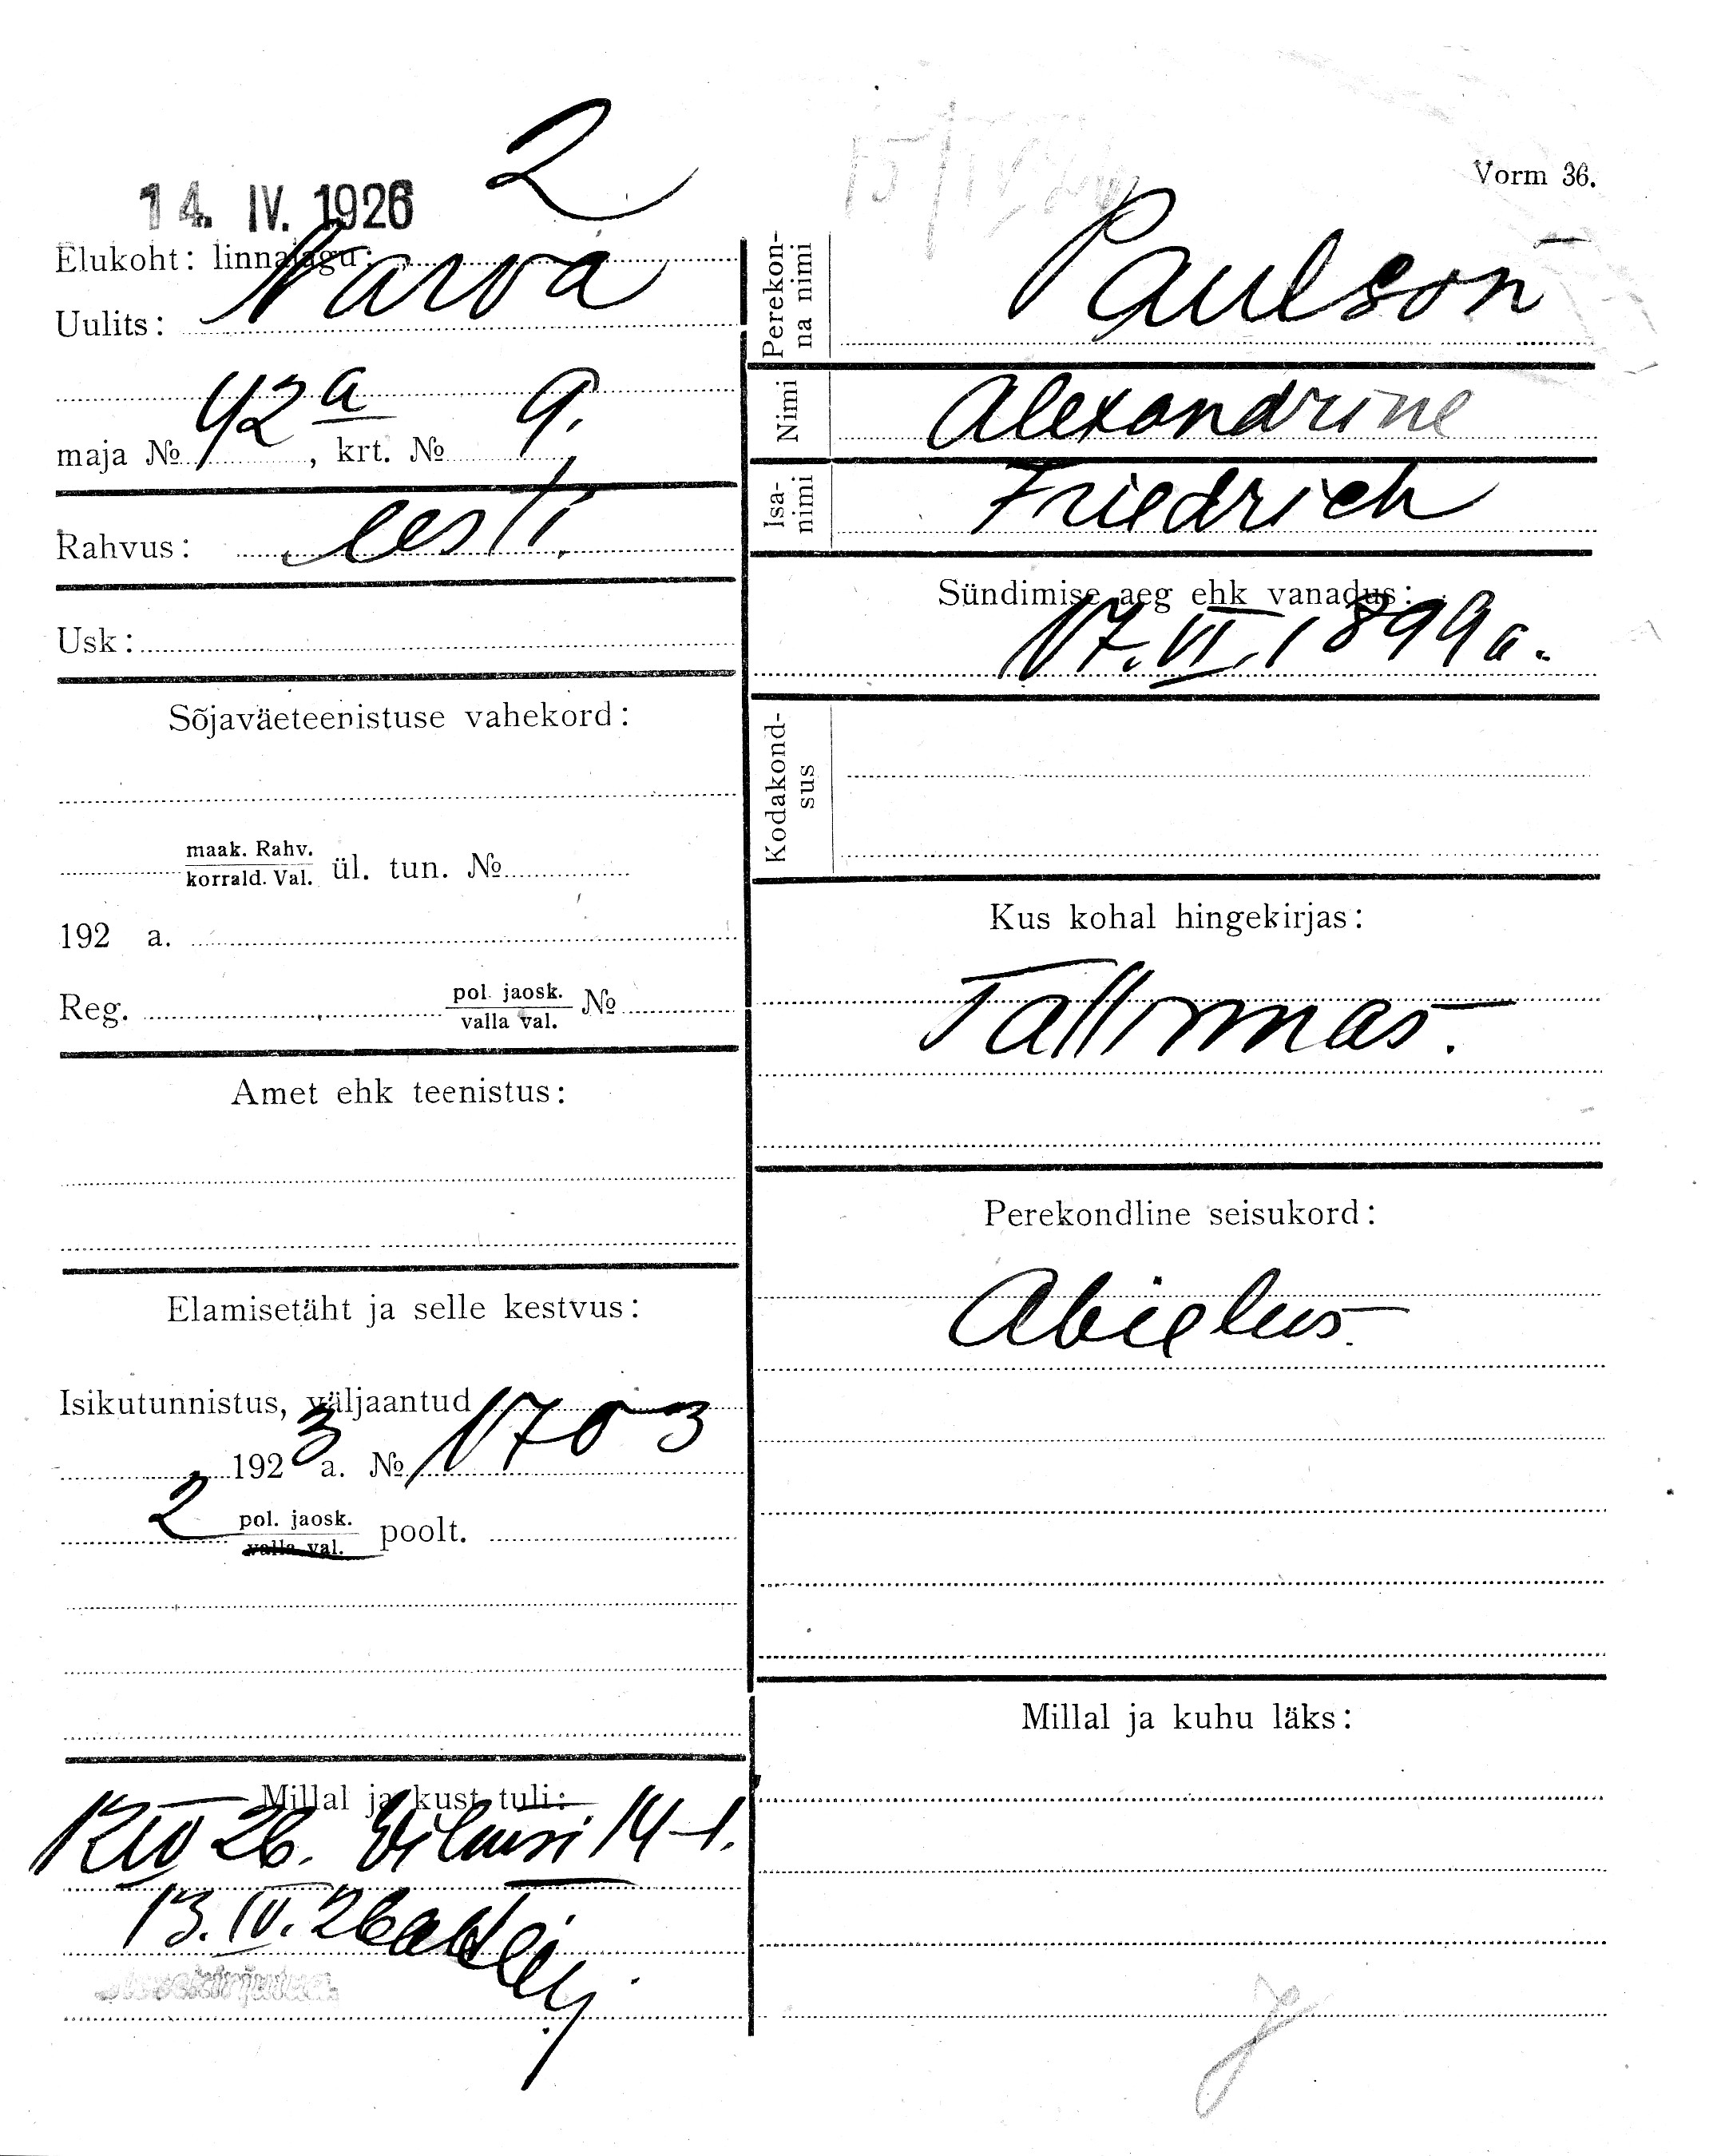 2
15/IV 26
14. IV. 1926
Vorm 36.
Elukoht: linnajagu:
Uulits: Narva
maja № 42a, krt. № 9.
Rahvus: eesti.
Usk:
Sõjaväeteenistuse vahekord:
maak. Rahv.
korrald. Val. ül. tun. №
192 a.
Reg. pol. jaosk. №
valla val.
Amet ehk teenistus:
Elamisetäht ja selle kestvus:
Isikutunnistus, väljaantud
1923 a. № 1703
2 pol. jaosk. poolt.
valla val.
Millal ja kust tuli:
26. 14-1.
13. IV. 26
Perekonna nimi Paulson
Nimi Alexandrine
Isanimi Friedrich
Sündimise aeg ehk vanadus:
17. VI. 1899 a.
Kodakondsus
Kus kohal hingekirjas:
Tallinnas.
Perekondline seisukord:
Abielus.
Millal ja kuhu läks: